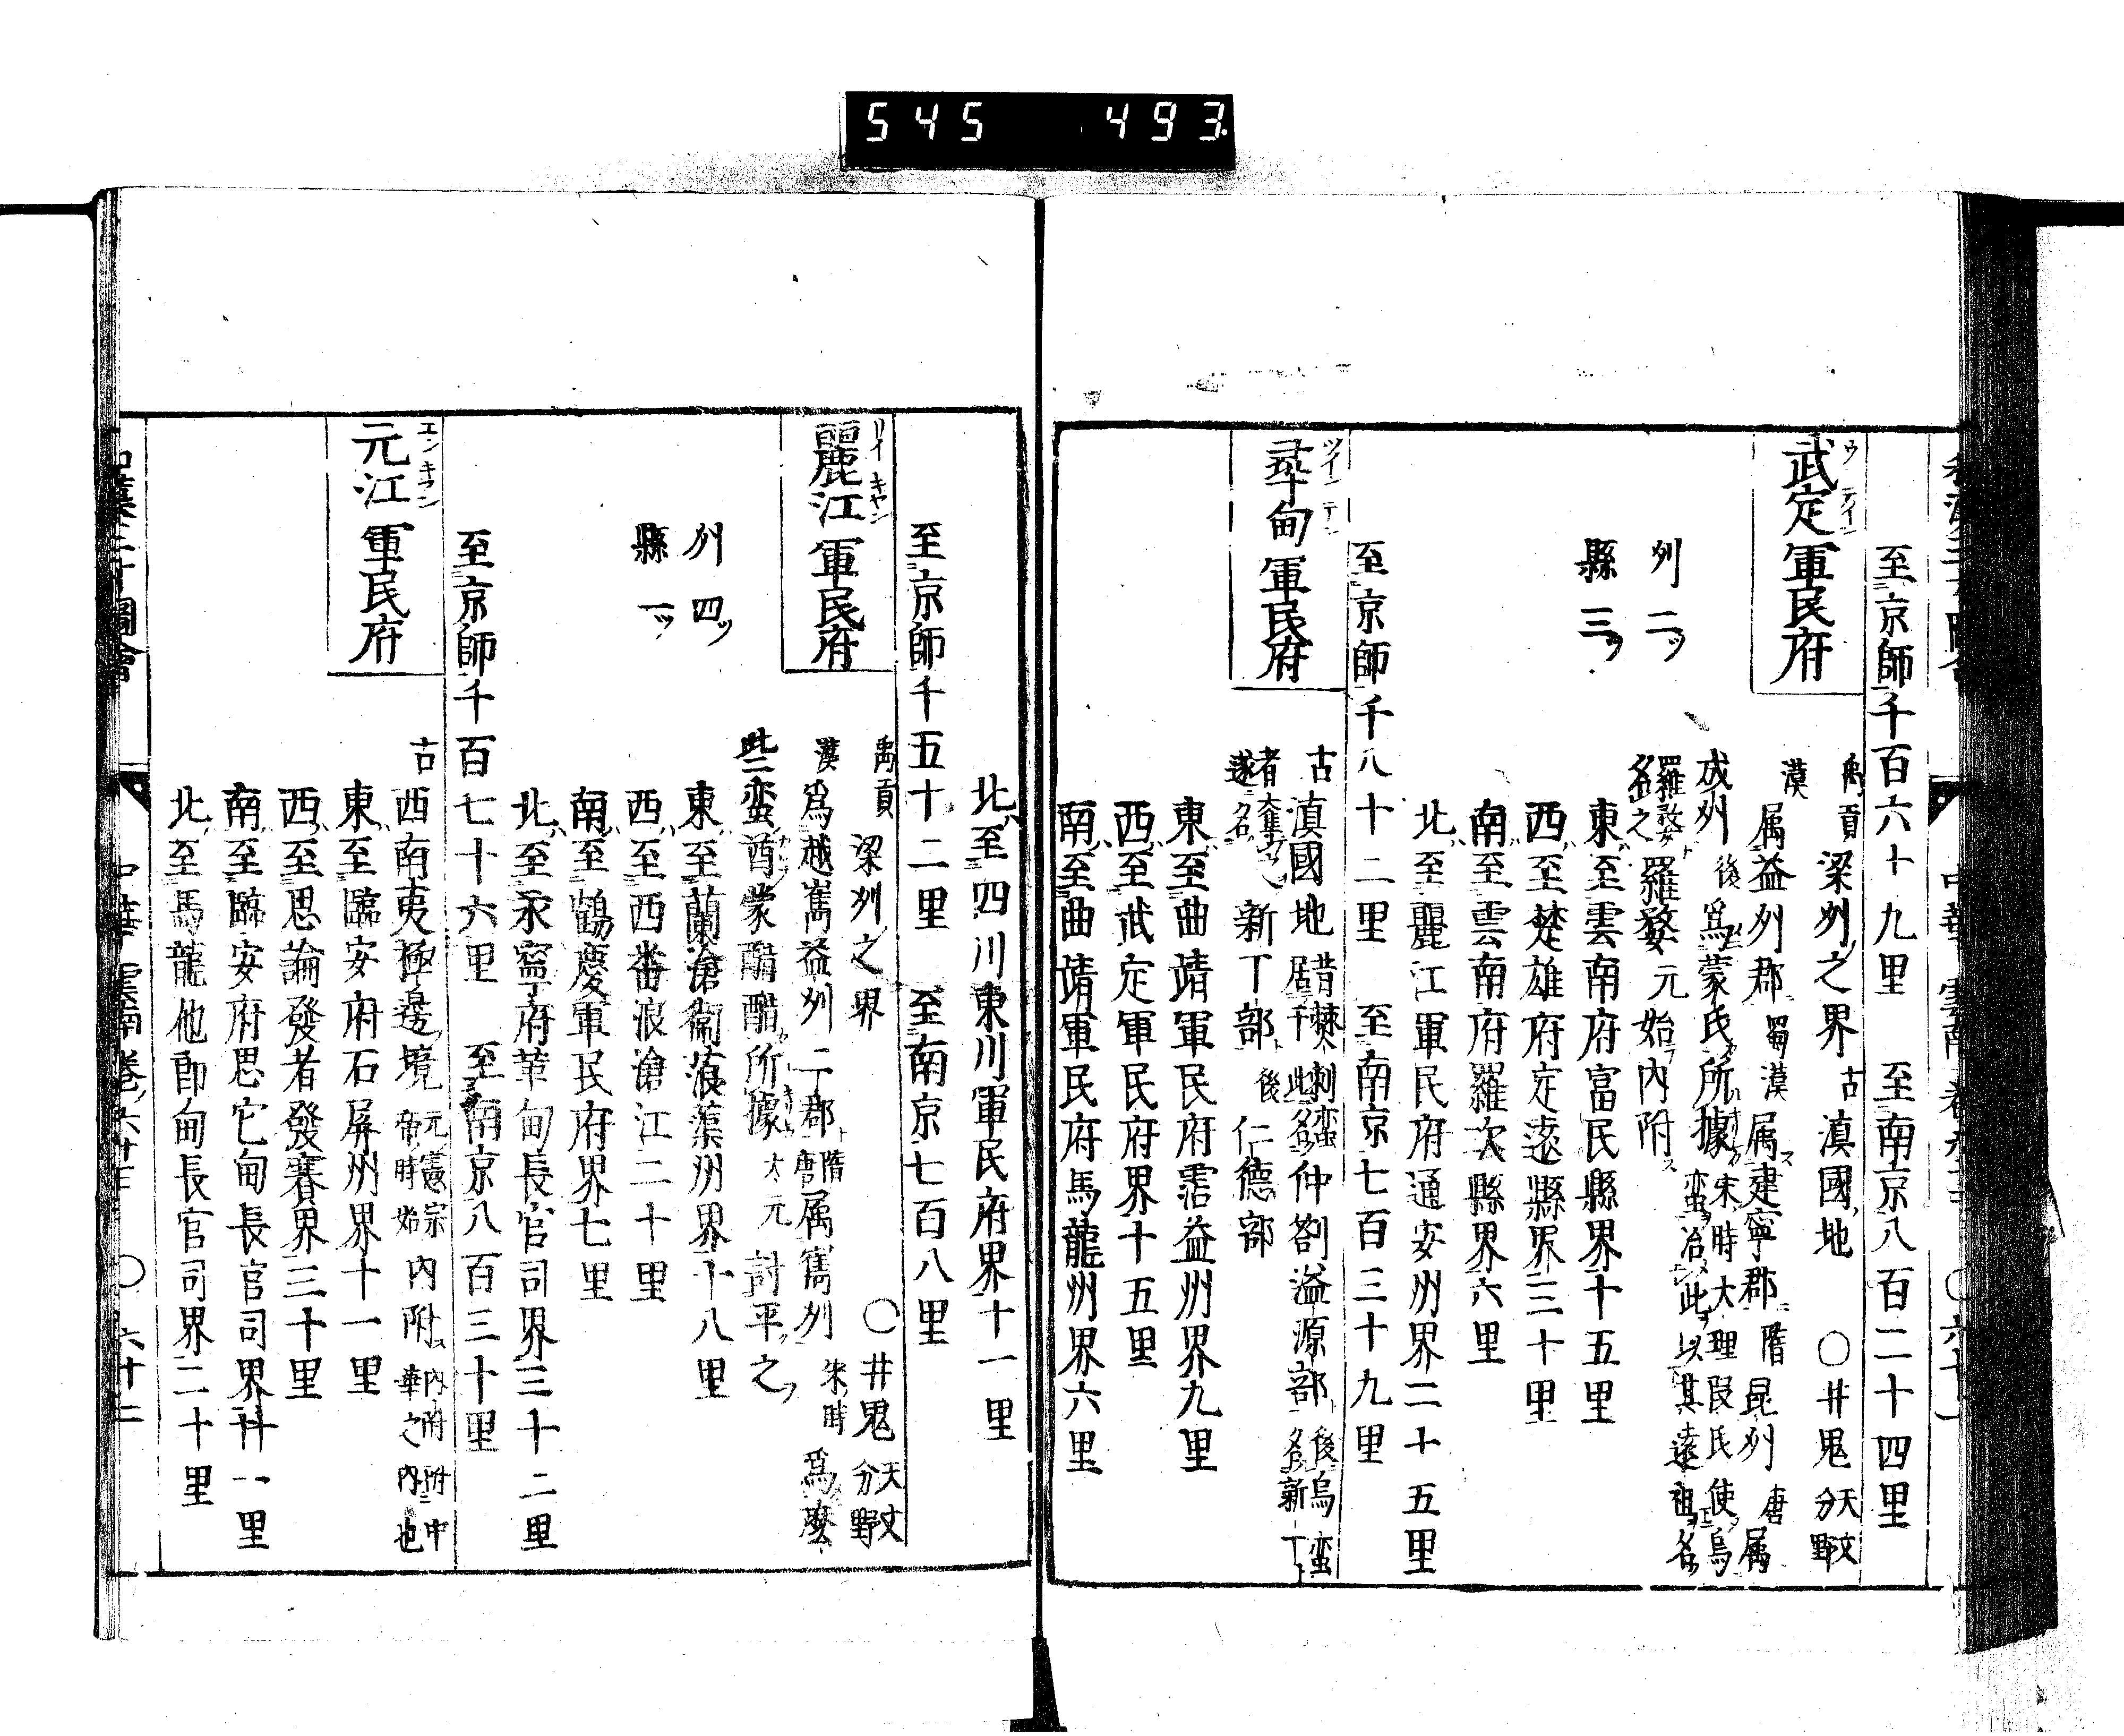 545 493
至京師千百六十九里 至南京八百二十四里
武定軍民府
ウ テイン
禹貢梁州之界 古滇國地 〇井鬼 天文分野
漢属益州郡 蜀漢属建寧郡 隋昆州 唐属
成州 後爲蒙氏所據 宋時大理叚氏使烏蛮治此以其遠祖名
羅婺名之 羅婺元始内附
州二ツ
縣三ツ
東ハ至雲南府富民縣界十五里
西ハ至楚雄府定遠縣界三十里
南ハ至雲南府羅次縣界六里
北ハ至麗江軍民府通安州界二十五里
至京師千八十二里 至南京七百三十九里
尋甸軍民府
ツイン テン
古滇國地 昔僰剌蛮居于此名 仲劄溢源部 後烏蛮名新丁
者奪 新丁部 後仁德部
遂名
東ハ至曲靖軍民府霑益州界九里
西ハ至武定軍民府界十五里
南ハ至曲靖軍民府馬龍州界六里
北ハ至四川東川軍民府界十一里
至京師千五十二里 至南京七百八里
麗江軍民府
リイ キヤン
禹貢梁州之界 〇井鬼 天文分野
漢爲越嶲益州二郡 隋唐属嶲州 宋時爲麽
些蛮酋蒙醋醋所據 大元討平之
州四ツ
縣一ツ
東ハ至蘭滄衞蒗蕖州界十八里
西ハ至西番浪滄江二十里
南ハ至鶴慶軍民府界七里
北ハ至永寧府革甸長官司界三十二里
至京師千百七十六里 至南京八百三十里
元江軍民府
エン キヤン
古西南夷極邊境 元憲宗帝時始内附 内附附中華之内也
東ハ至臨安府石屏州界十一里
西ハ至思論發者發賽界三十里
南ハ至臨安府思它甸長官司界廿一里
北ハ至馬龍他郎甸長官司界二十里
中華 雲南 卷六十三 〇 六十二